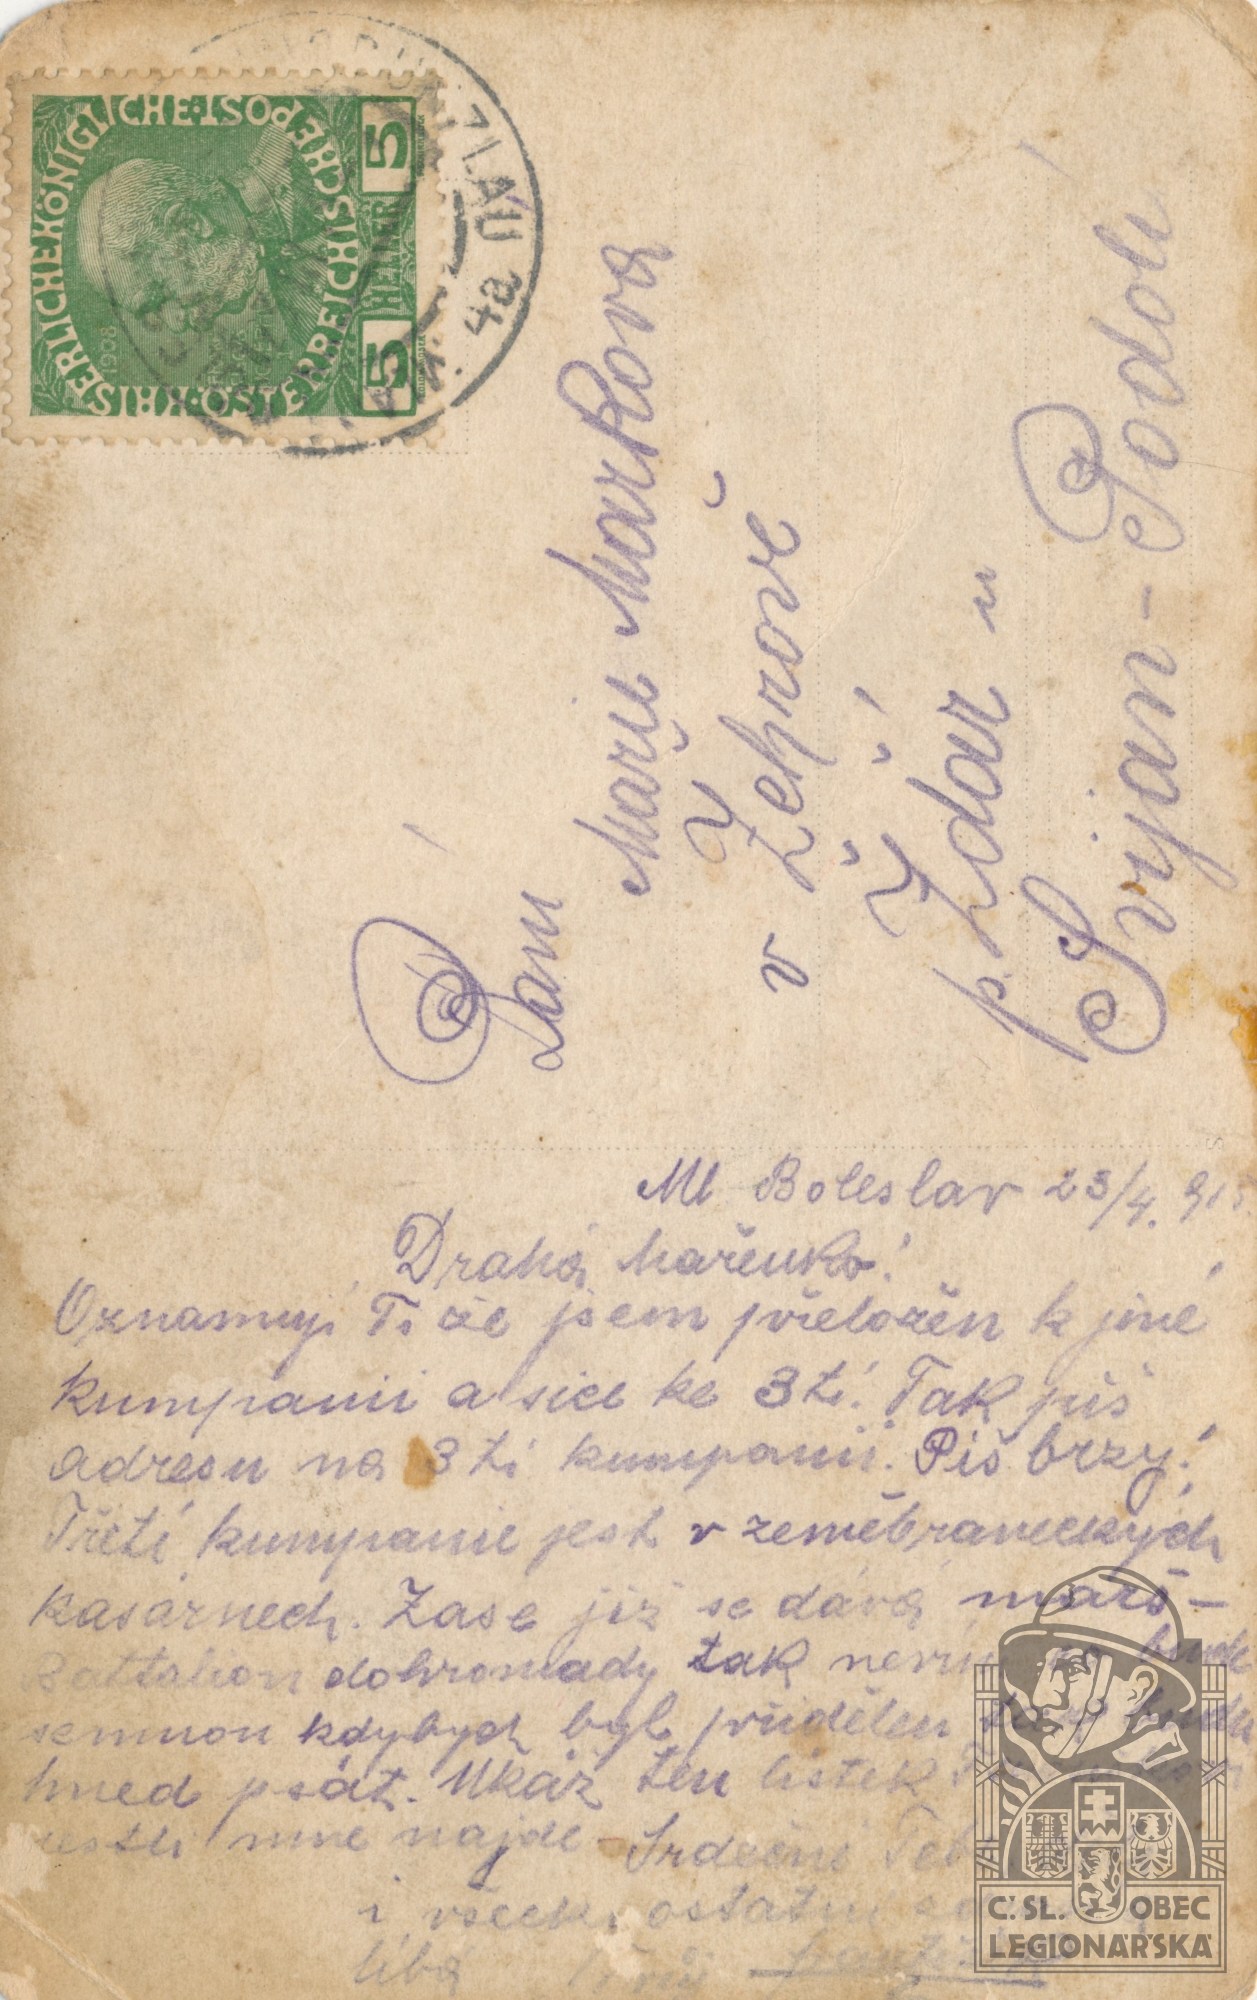 KAISERLICHE KÖNIGLICHE ÖSTERREICHISCHE POST
5 HELLER 5
1908
4a
Paní
Mařie Mařková
v Žehrově
p. Žďár u
Svijan-Podolí
Ml Boleslav 23/4.
Drahá Mařenko!
Oznamuji Ti že jsem přeložen k jiné
kumpanii a sice ke 3tí. Tak piš
adresu na 3tí kumpanii. Piš brzy!
Třetí kumpanie jest v zeměbraneckých
kasárnech. Zase již se dává marš-
Battalion dohromady tak nevím co bude
semnou kdybych byl přidělen budu
hned psát. Ukáž ten lístek
jestli mne najde Srdečně
i všecky ostatní
líbá
Č. SL. OBEC
LEGIONÁŘSKÁ